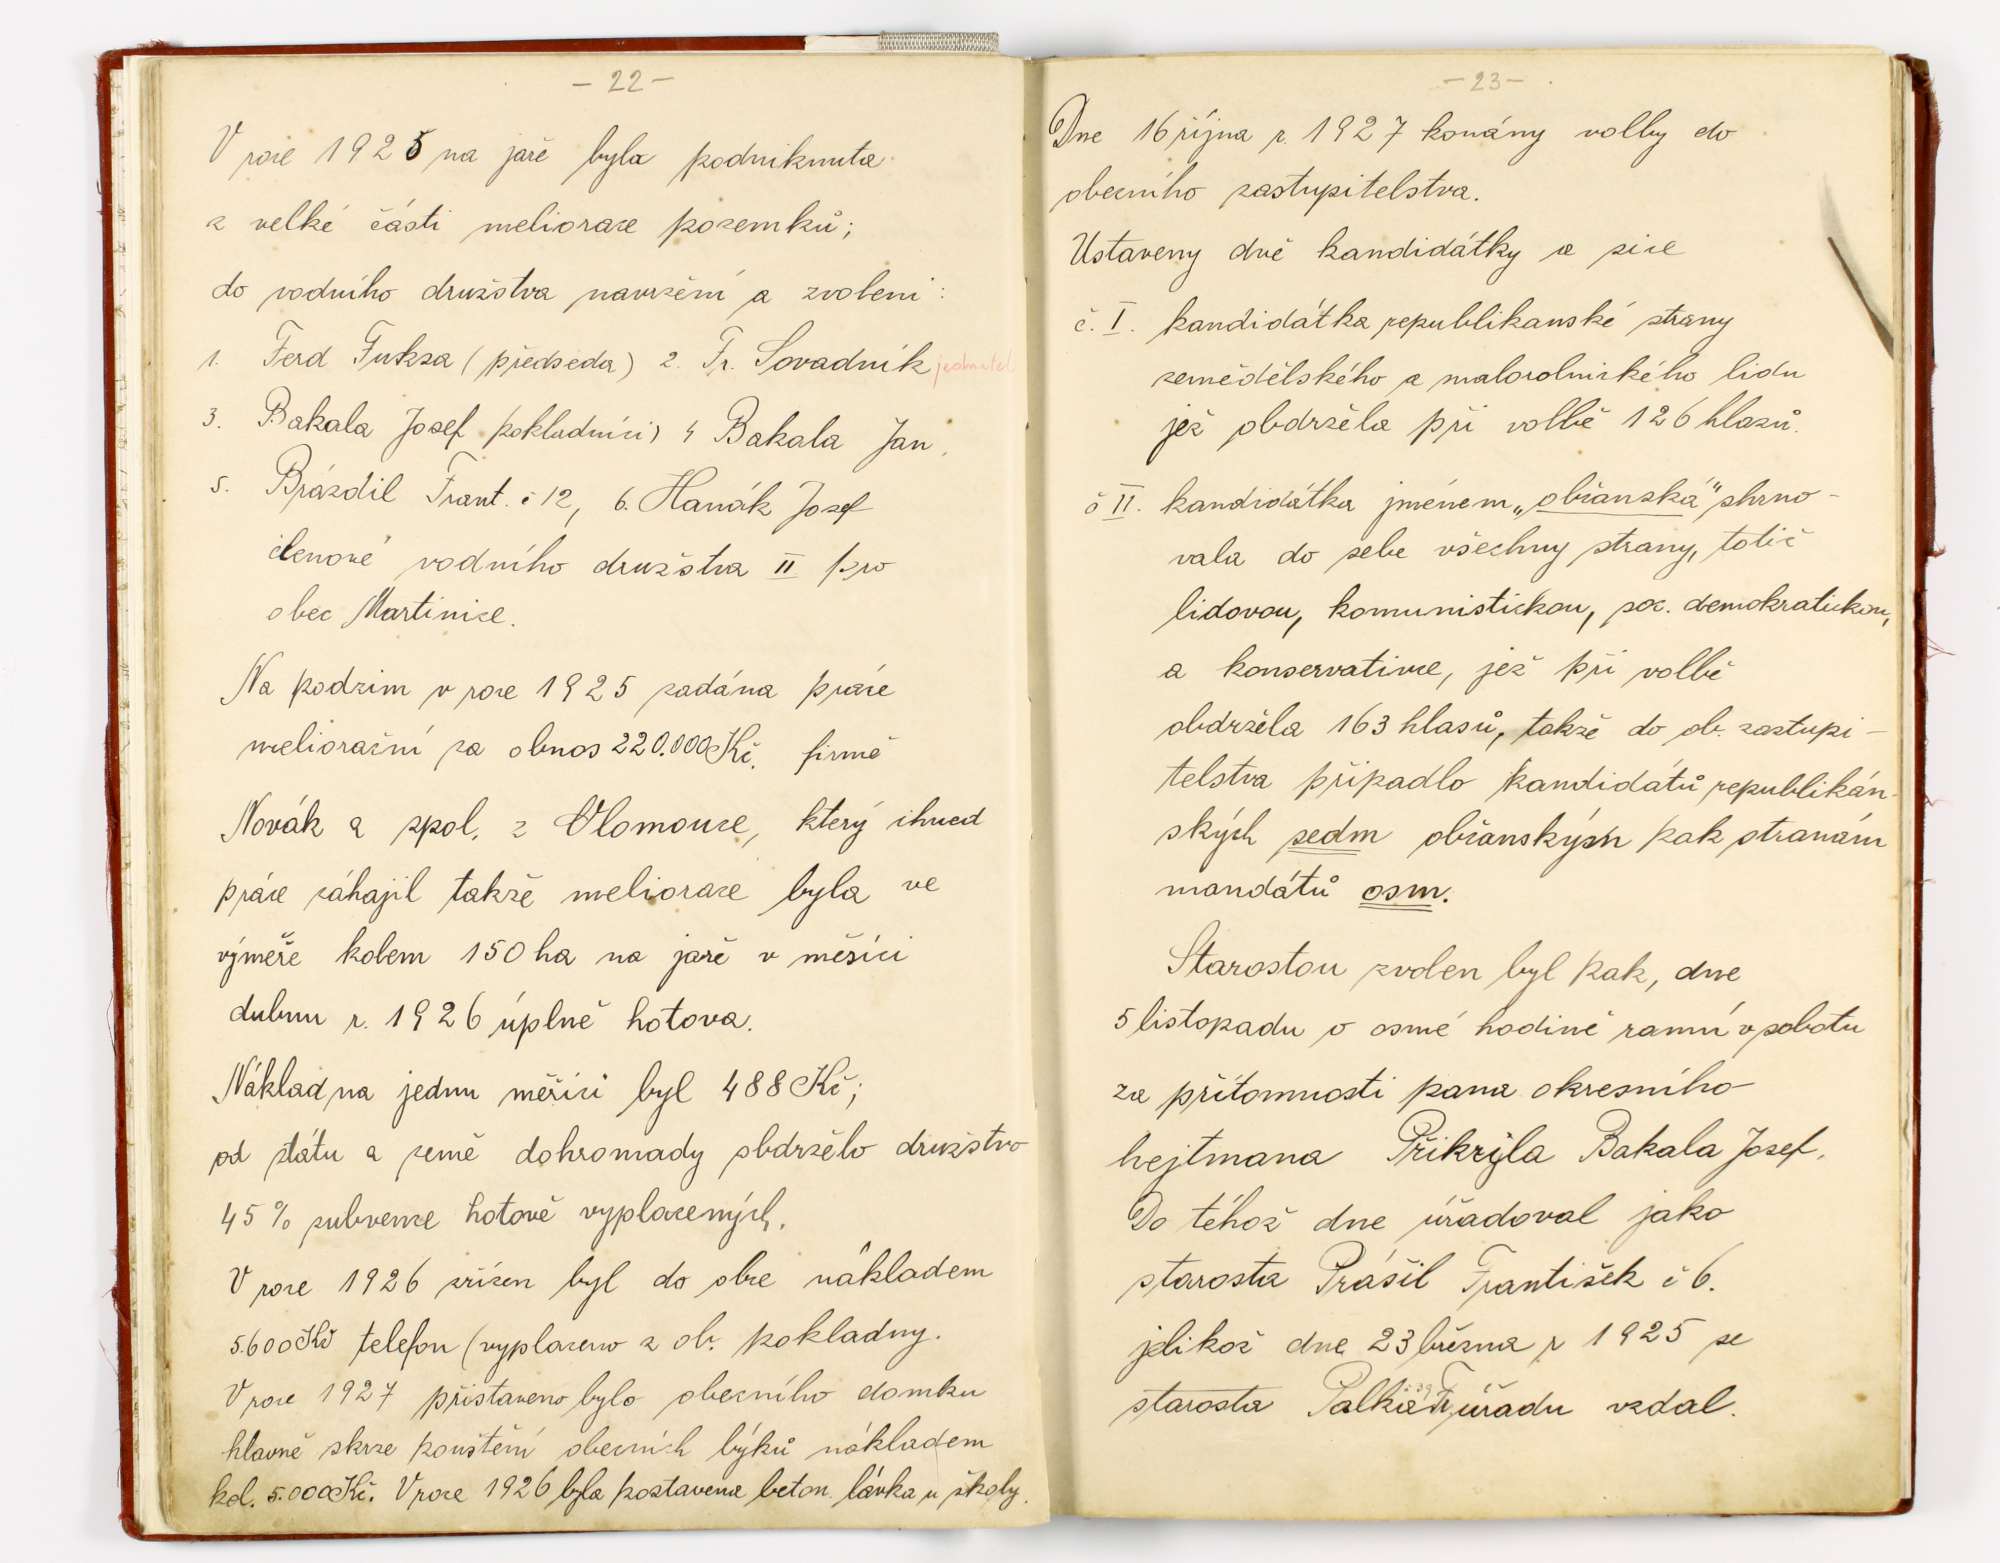 - 22 -
V roce 1925 na jaře byla podniknuta
z velké části meliorace pozemků;
do vodního družstva navrženi a zvoleni:
1. Ferd Fuksa (předseda) 2. Fr. Sovadník jednatel
3. Bakala Josef pokladníci) 4 Bakala Jan,
5. Brázdil Frant. č 12, 6. Hanák Josef
členové vodního družstva II pro
obec Martinice.
Na podzim v roce 1925 zadána práce
meliorační za obnos 220.000 Kč. firmě
Novák a spol. z Olomouce, který ihned
práce záhajil takže meliorace byla ve
výměře kolem 150 ha na jaře v měsíci
dubnu r. 1926 úplně hotova.
Náklad na jednu měřici byl 488 Kč;
od státu a země dohromady obdrželo družstvo
45 % subvence hotově vyplacených.
V roce 1926 zřízen byl do obce nákladem
5.600 Kč telefon (vyplaceno z ob. pokladny.
V roce 1927 přistaveno bylo obecního domku
hlavně skrze pouštění obecních býků nákladem
kol. 5.000 Kč. V roce 1926 byla postavena beton. lávka u školy.
- 23 -
Dne 16 října r. 1927 konány volby do
obecního zastupitelstva.
Ustaveny dvě kandidátky a sice
č. I. kandidátka republikanské strany
zemědělského a malorolnického lidu
jež obdržela při volbě 126 hlasů.
č II. kandidátka jménem „občanská" shrno-
vala do sebe všechny strany, totiž
lidovou, komunistickou, soc. demokratickou,
a konservativce, jež při volbě
obdržela 163 hlasů, takže do ob. zastupi-
telstva připadlo kandidátů republikán-
ských sedm občanských pak stranám
mandátů osm.
Starostou zvolen byl pak, dne
5 listopadu o osmé hodině ranní v sobotu
za přítomnosti pana okresního
hejtmana Přikryla Bakala Josef.
Do téhož dne úřadoval jako
starosta Prášil František č 6.
jelikož dne 23 března r 1925 se
starosta Palka Fr. úřadu vzdal.